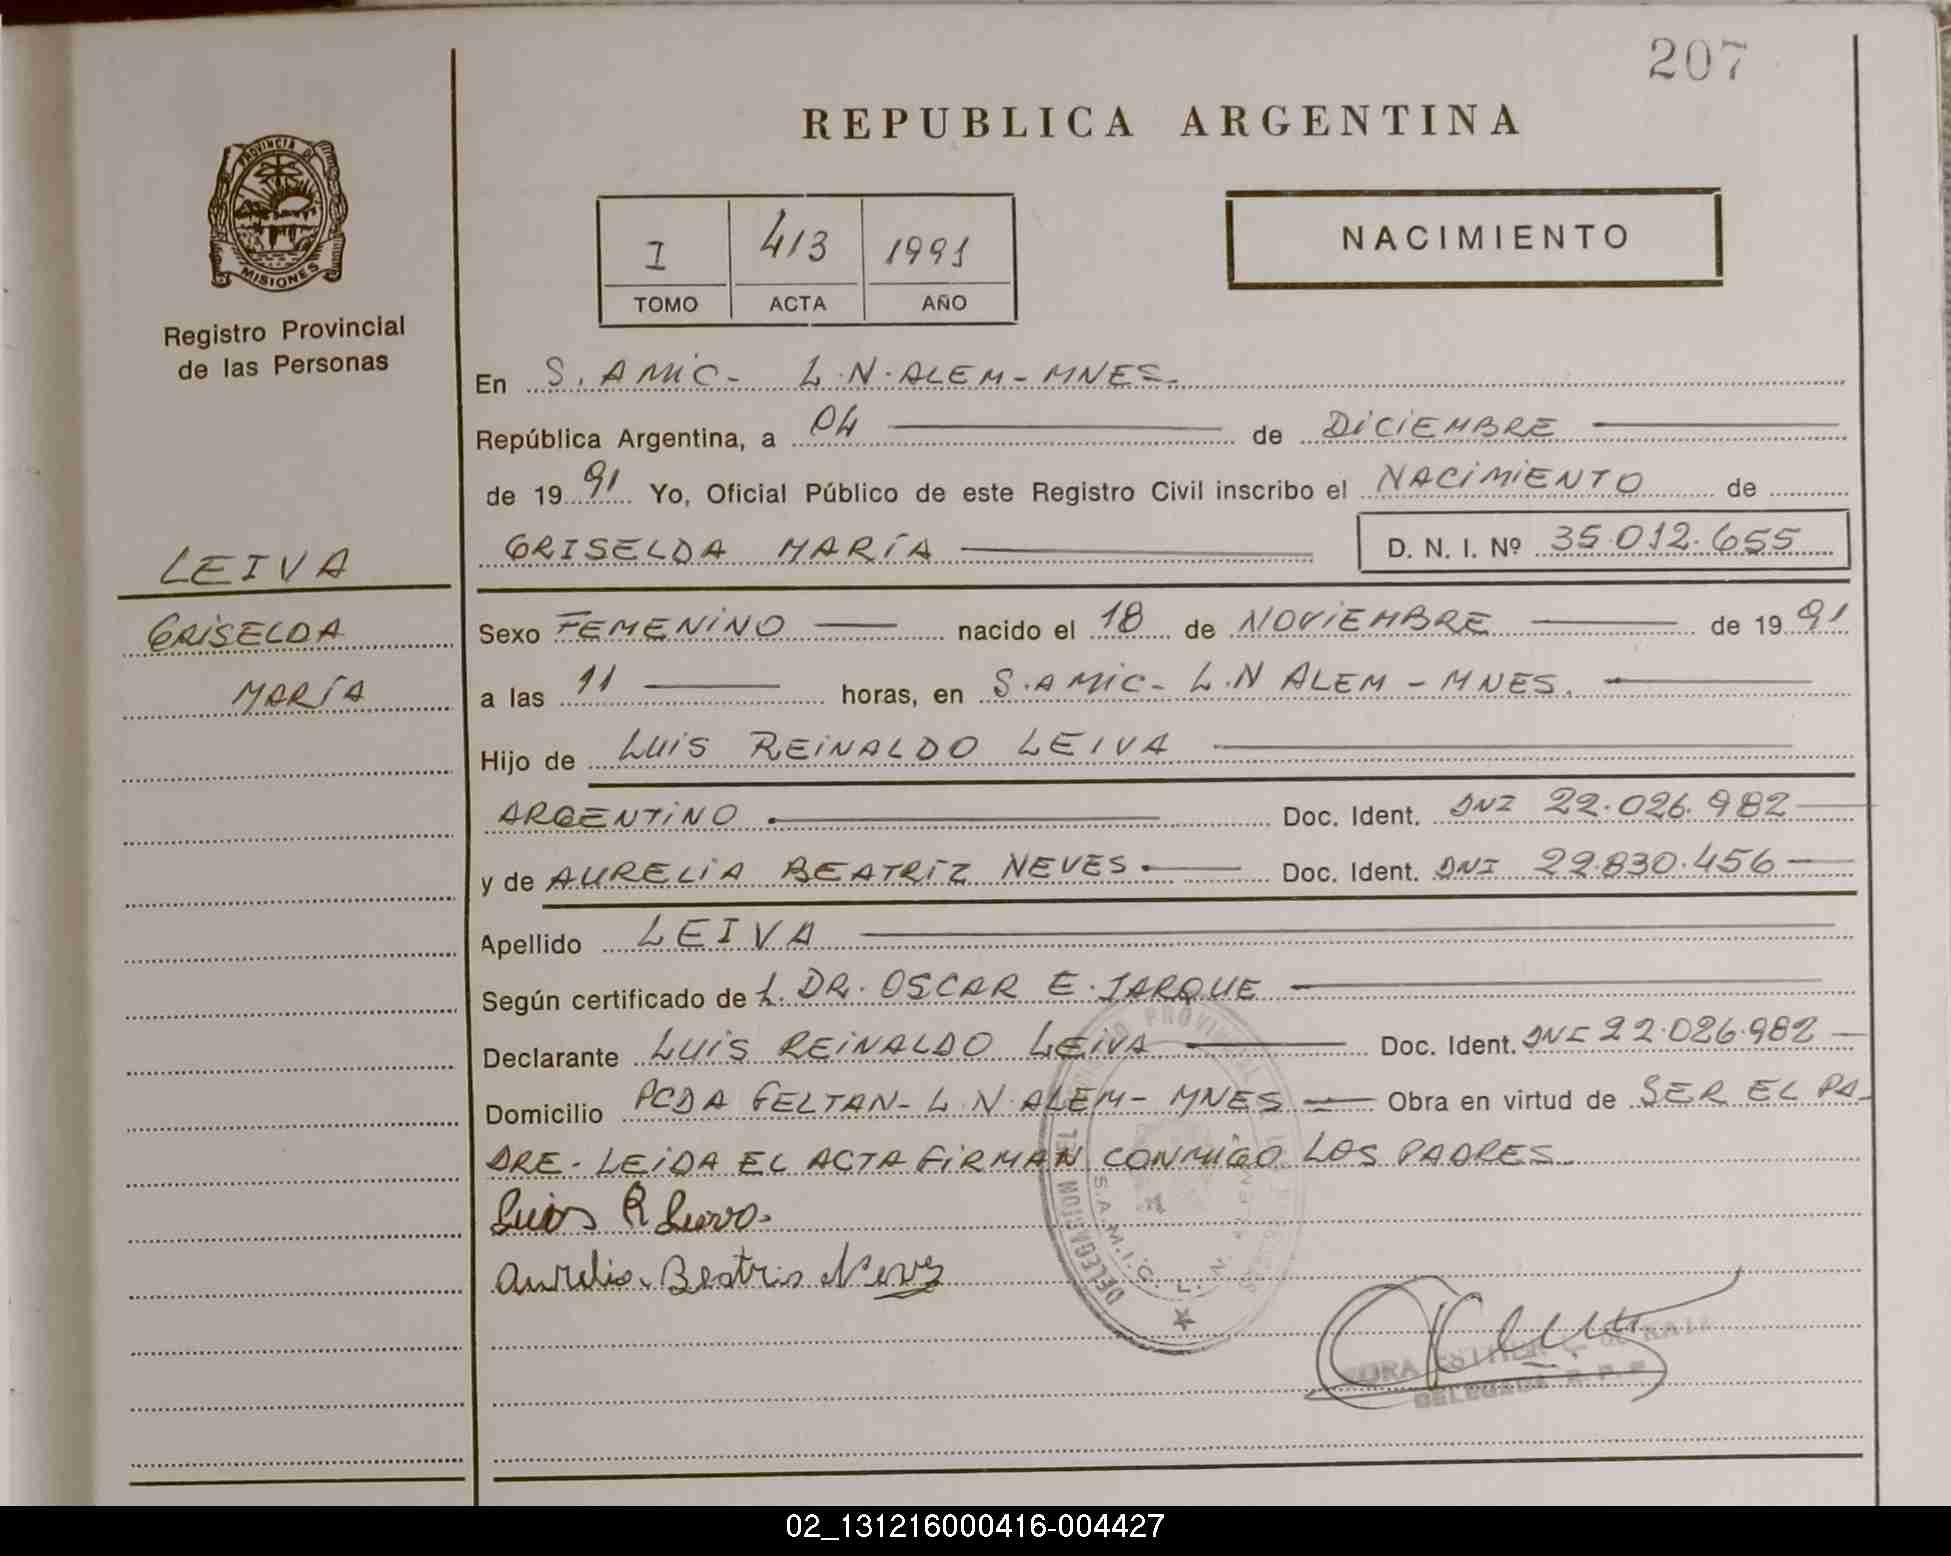 207
REPUBLICA ARGENTINA
PROVINCIA DE
MISIONES
Registro Provincial
de las Personas
I 413 1991
TOMO ACTA AÑO
NACIMIENTO
En S. AMIC- L.N. ALEM - MNES.
República Argentina, a 04 de DICIEMBRE
de 19 91 Yo, Oficial Público de este Registro Civil inscribo el NACIMIENTO de
GRISELDA MARÍA D. N. I. Nº 35.012.655
LEIVA
GRISELDA
MARÍA
Sexo FEMENINO nacido el 18 de NOVIEMBRE de 19 91
a las 11 horas, en S. AMIC- L.N ALEM - MNES.
Hijo de LUIS REINALDO LEIVA
ARGENTINO Doc. Ident. DNI 22.026.982
y de AURELIA BEATRIZ NEVES Doc. Ident. DNI 22.830.456
Apellido LEIVA
Según certificado de L. DR. OSCAR E. JARQUE
Declarante LUIS REINALDO LEIVA Doc. Ident. DNI 22.026.982
Domicilio PCDA FELTAN- L N ALEM- MNES Obra en virtud de SER EL PA-
DRE- LEIDA EL ACTA FIRMAN CONMIGO LOS PADRES.
Luis R Leiva.
Aurelia Beatris Neves
DELEGACION DEL REGISTRO PROVINCIAL DE
S.A.M.I.C. L. N.
ESTHER
DELEGADA R. P. P.
02_131216000416-004427